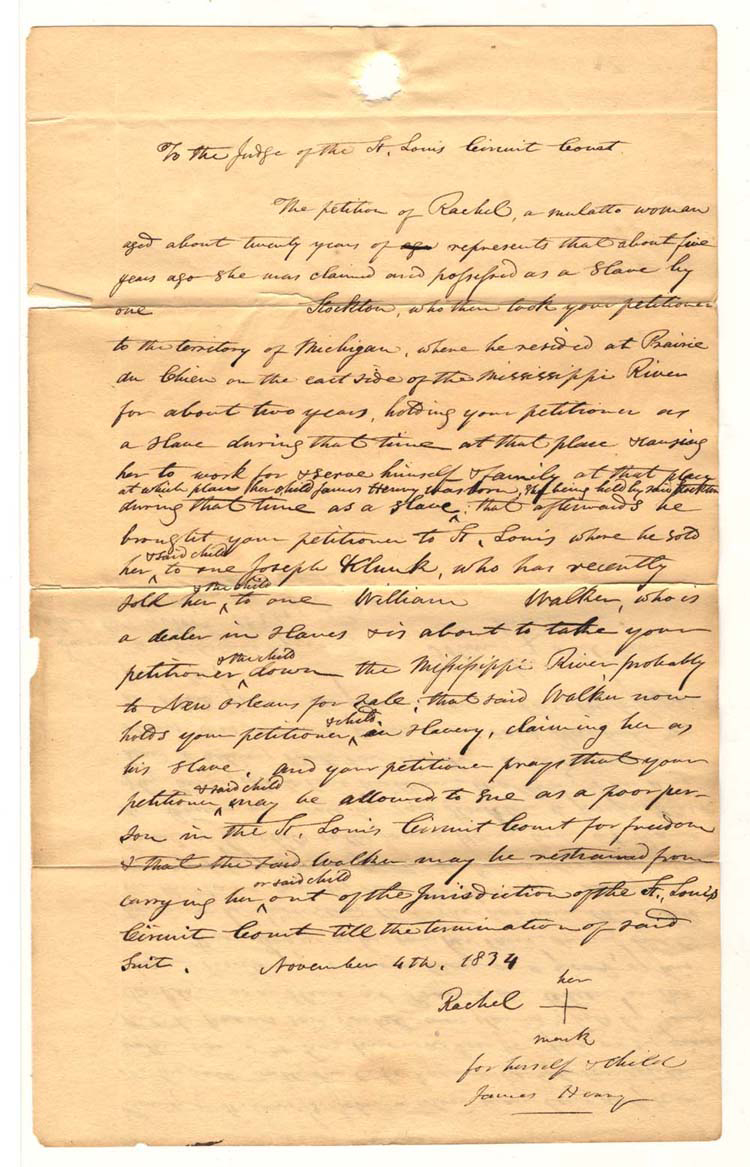 To the Judge of the St. Louis Circuit Court.
The petition of Rachel, a mulatto woman
aged about twenty years of age represents that about five
years ago she was claimed and possessed as a Slave by
one Stockton, who then took your petitioner
to the territory of Michigan, where he resided at Prairie
du Chien on the east side of the Mississippi River
for about two years, holding your petitioner as
a slave during that time at that place & causing
her to work for & serve himself & family at that place
at which place her child James Henry was born, & being held by said Stockton
during that time as a slave; that afterwards he
brought your petitioner to St. Louis where he sold
& said child
her, to one Joseph Klunk, who has recently
& the child
sold her, to one William Walker, who is
a dealer in slaves & is about to take your
& the child
petitioner down the Mississippi River probably
to New Orleans for sale; that said Walker now
& child
holds your petitioner, in slavery, claiming her as
his slave, and your petitioner prays that your
& said child
petitioner, may be allowed to sue as a poor per-
son in the St. Louis Circuit Court for freedom
& that the said Walker may be restrained from
or said child
carrying her out of the Jurisdiction of the St. Louis
Circuit Court till the termination of said
Suit. November 4th. 1834
her
Rachel +
mark
for herself & child
James Henry